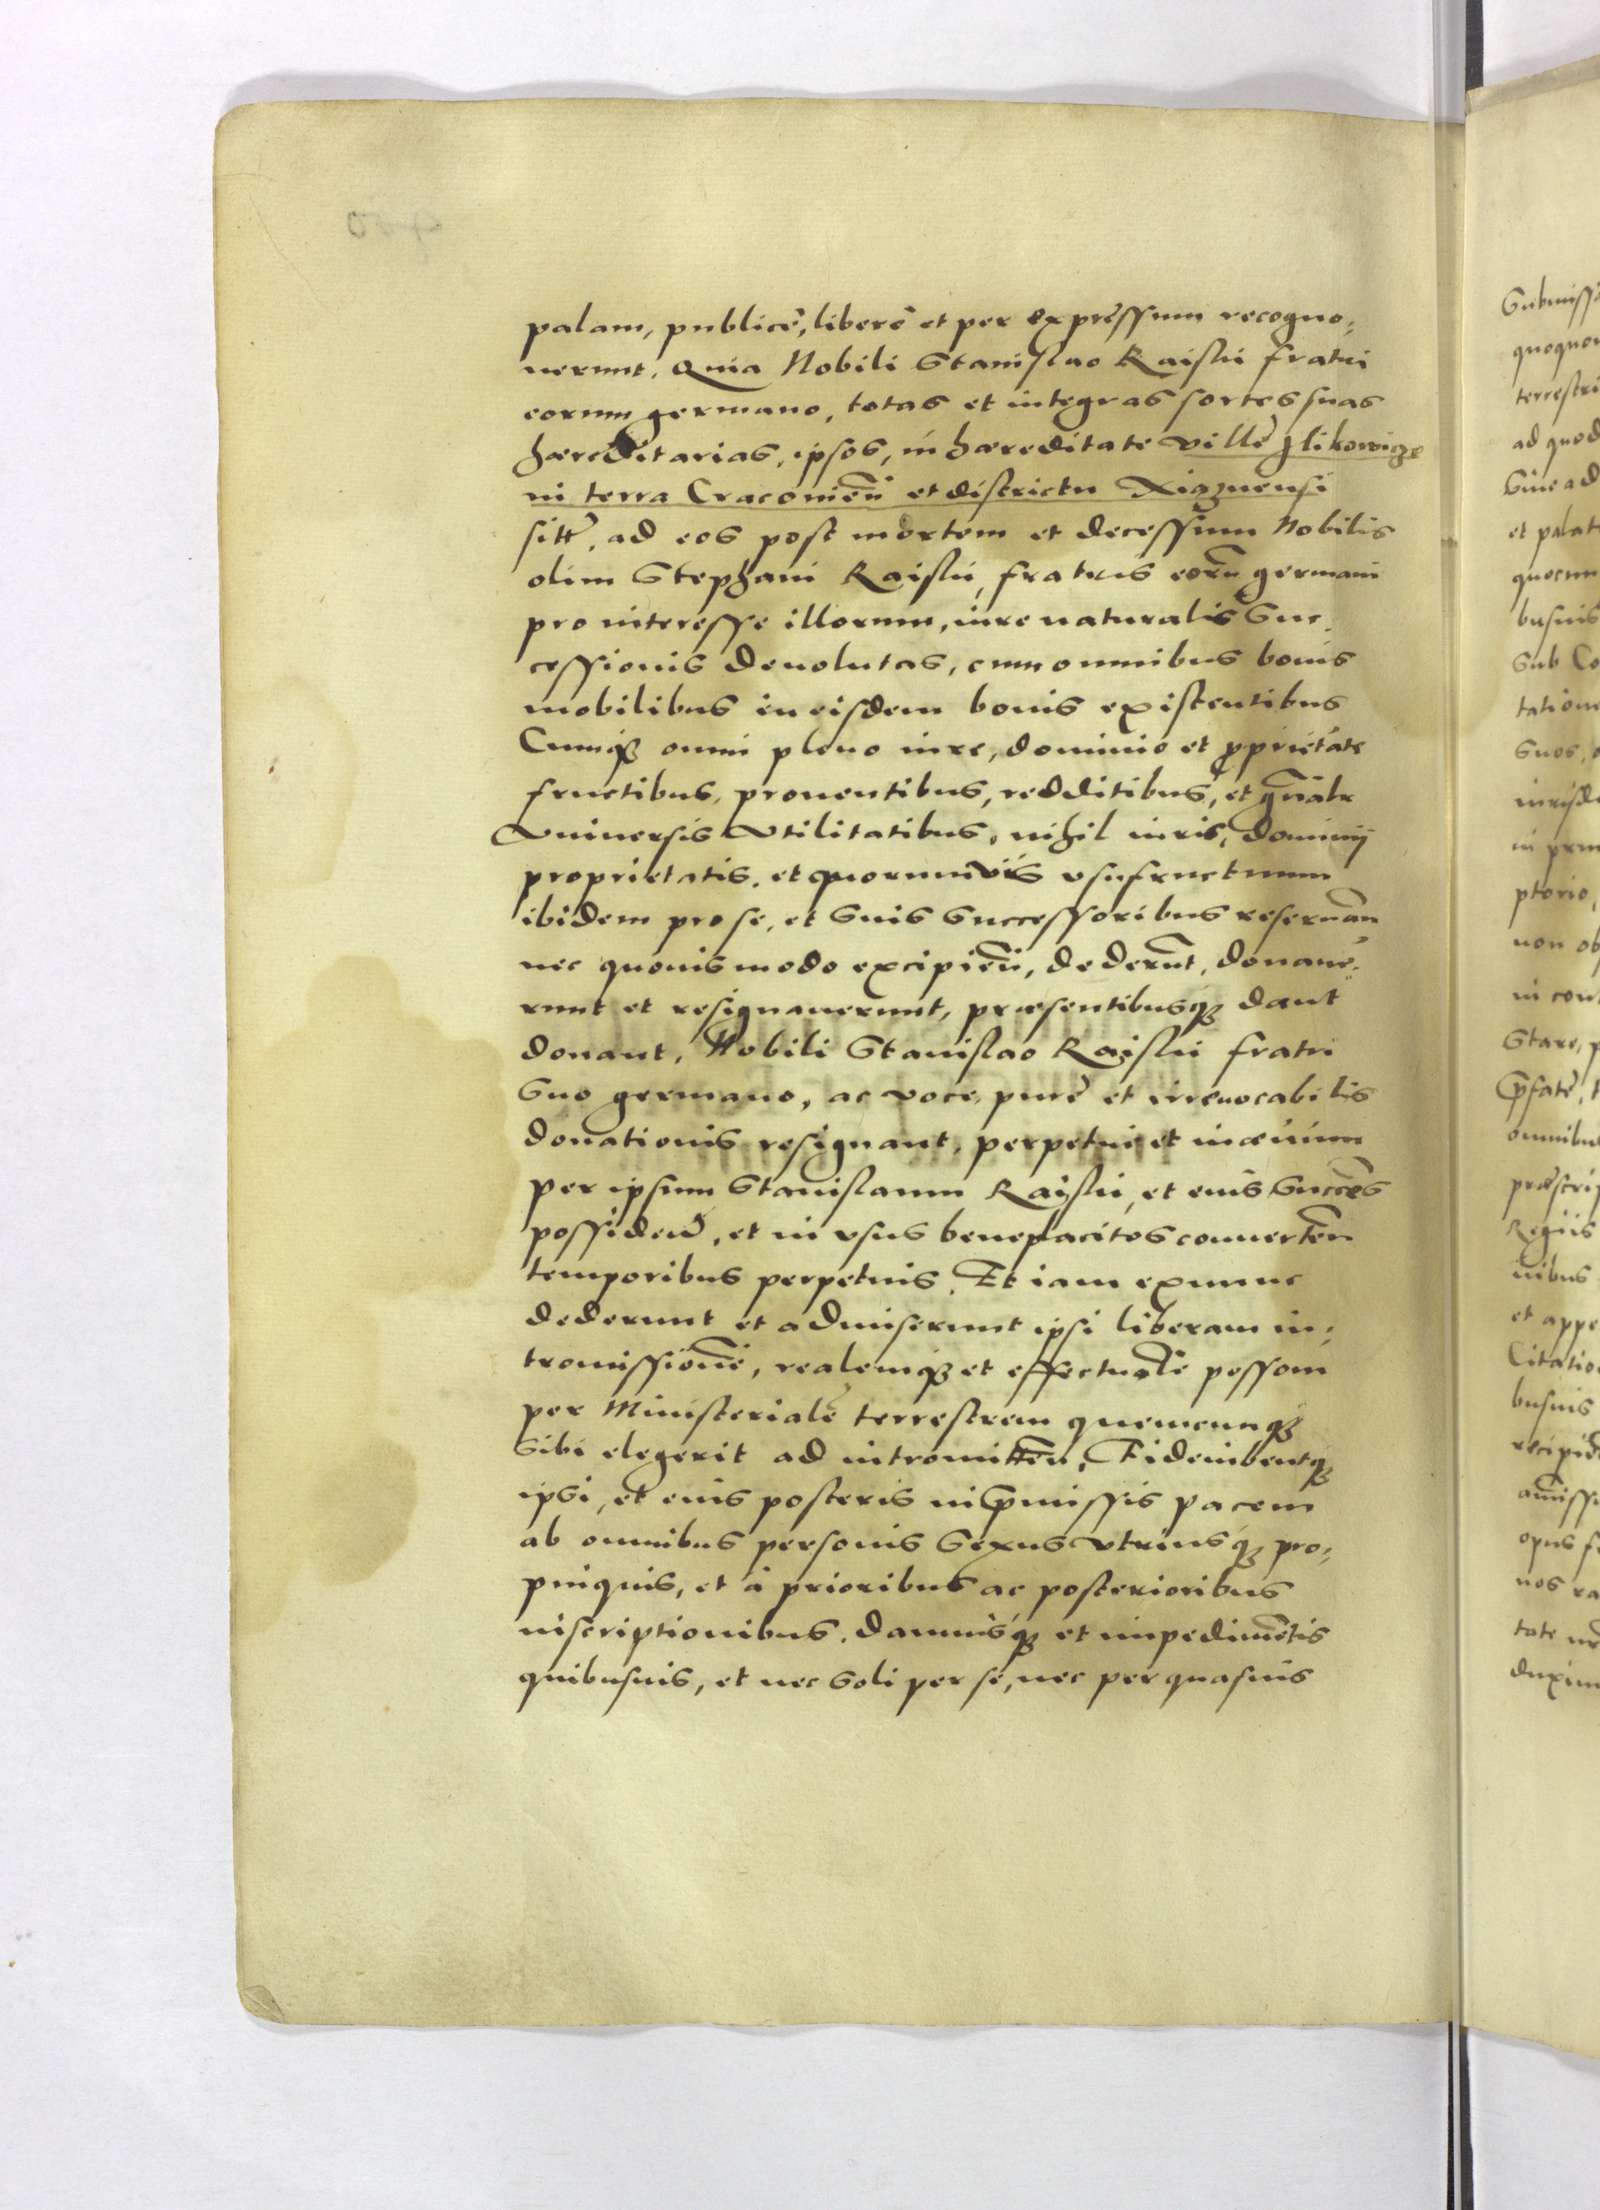 palam, publicè, liberè et per expressum recogno:
uerunt. Quia Nobili Stanislao Raiski fratri
eorum germano, totas et integras sortes suas
hæreditarias, ipsos, in hæreditate villę Ilikowicze
in terra Cracouień et districtu Xiąznensi
sitę, ad eos post mortem et decessum Nobilis
olim Stephani Raiskii, fratris eorū germani
pro interesse illorum, iure naturalis Suc,
cessionis deuolutas, cum omnibus bonis
mobilibus in eisdem bonis existentibus
Cumq3 omni pleno iure, dominio et proprietate
fructibus, prouentibus, redditibus, et gñalr
Vniuersis Vtilitatibus, nihil iuris, dominij
proprietatis, et quorumuis vsufructuum
ibidem pro se, et Suis Successoribus reseruań
nec quouis modo excipień, dederūt, donaue:
runt et resignauerunt, præsentibusq3 dant
donant, Nobili Stanislao Raiskii fratri
Suo germano, ac voce, purè et irreuocabilis
donationis resignant, perpetuè et in æuum
per ipsum Stanislaum Raiskii, et eius Succēs
possideñ, et in vsus beneplacitos conuerteñ
temporibus perpetuis. Et iam exnunc
dederunt et admiserunt ipsi liberam in:
tromissionē, realemq3 et effectualē possom
per Ministerialē terrestrem quemcunq3
Sibi elegerit ad intromitteñ, Fideiubentq3
ipsi, et eius posteris in p̄missis pacem
ab omnibus personis Sexus vtriusq3 pro:
pinquis, et à prioribus ac posterioribus
inscriptionibus, damnisq3 et impedimētis
quibusuis, et nec Soli per se, nec per quasuis
Submiss
terrestri
ad quod
Siue ad
busuis
Sub Co
tatione
Suos,
ptorio,
non ob
in cont
Stare, p
omnibu
præscrip
Regiis
nibus
et appe
Citatio
busuis
opus f
nos ra
duxim